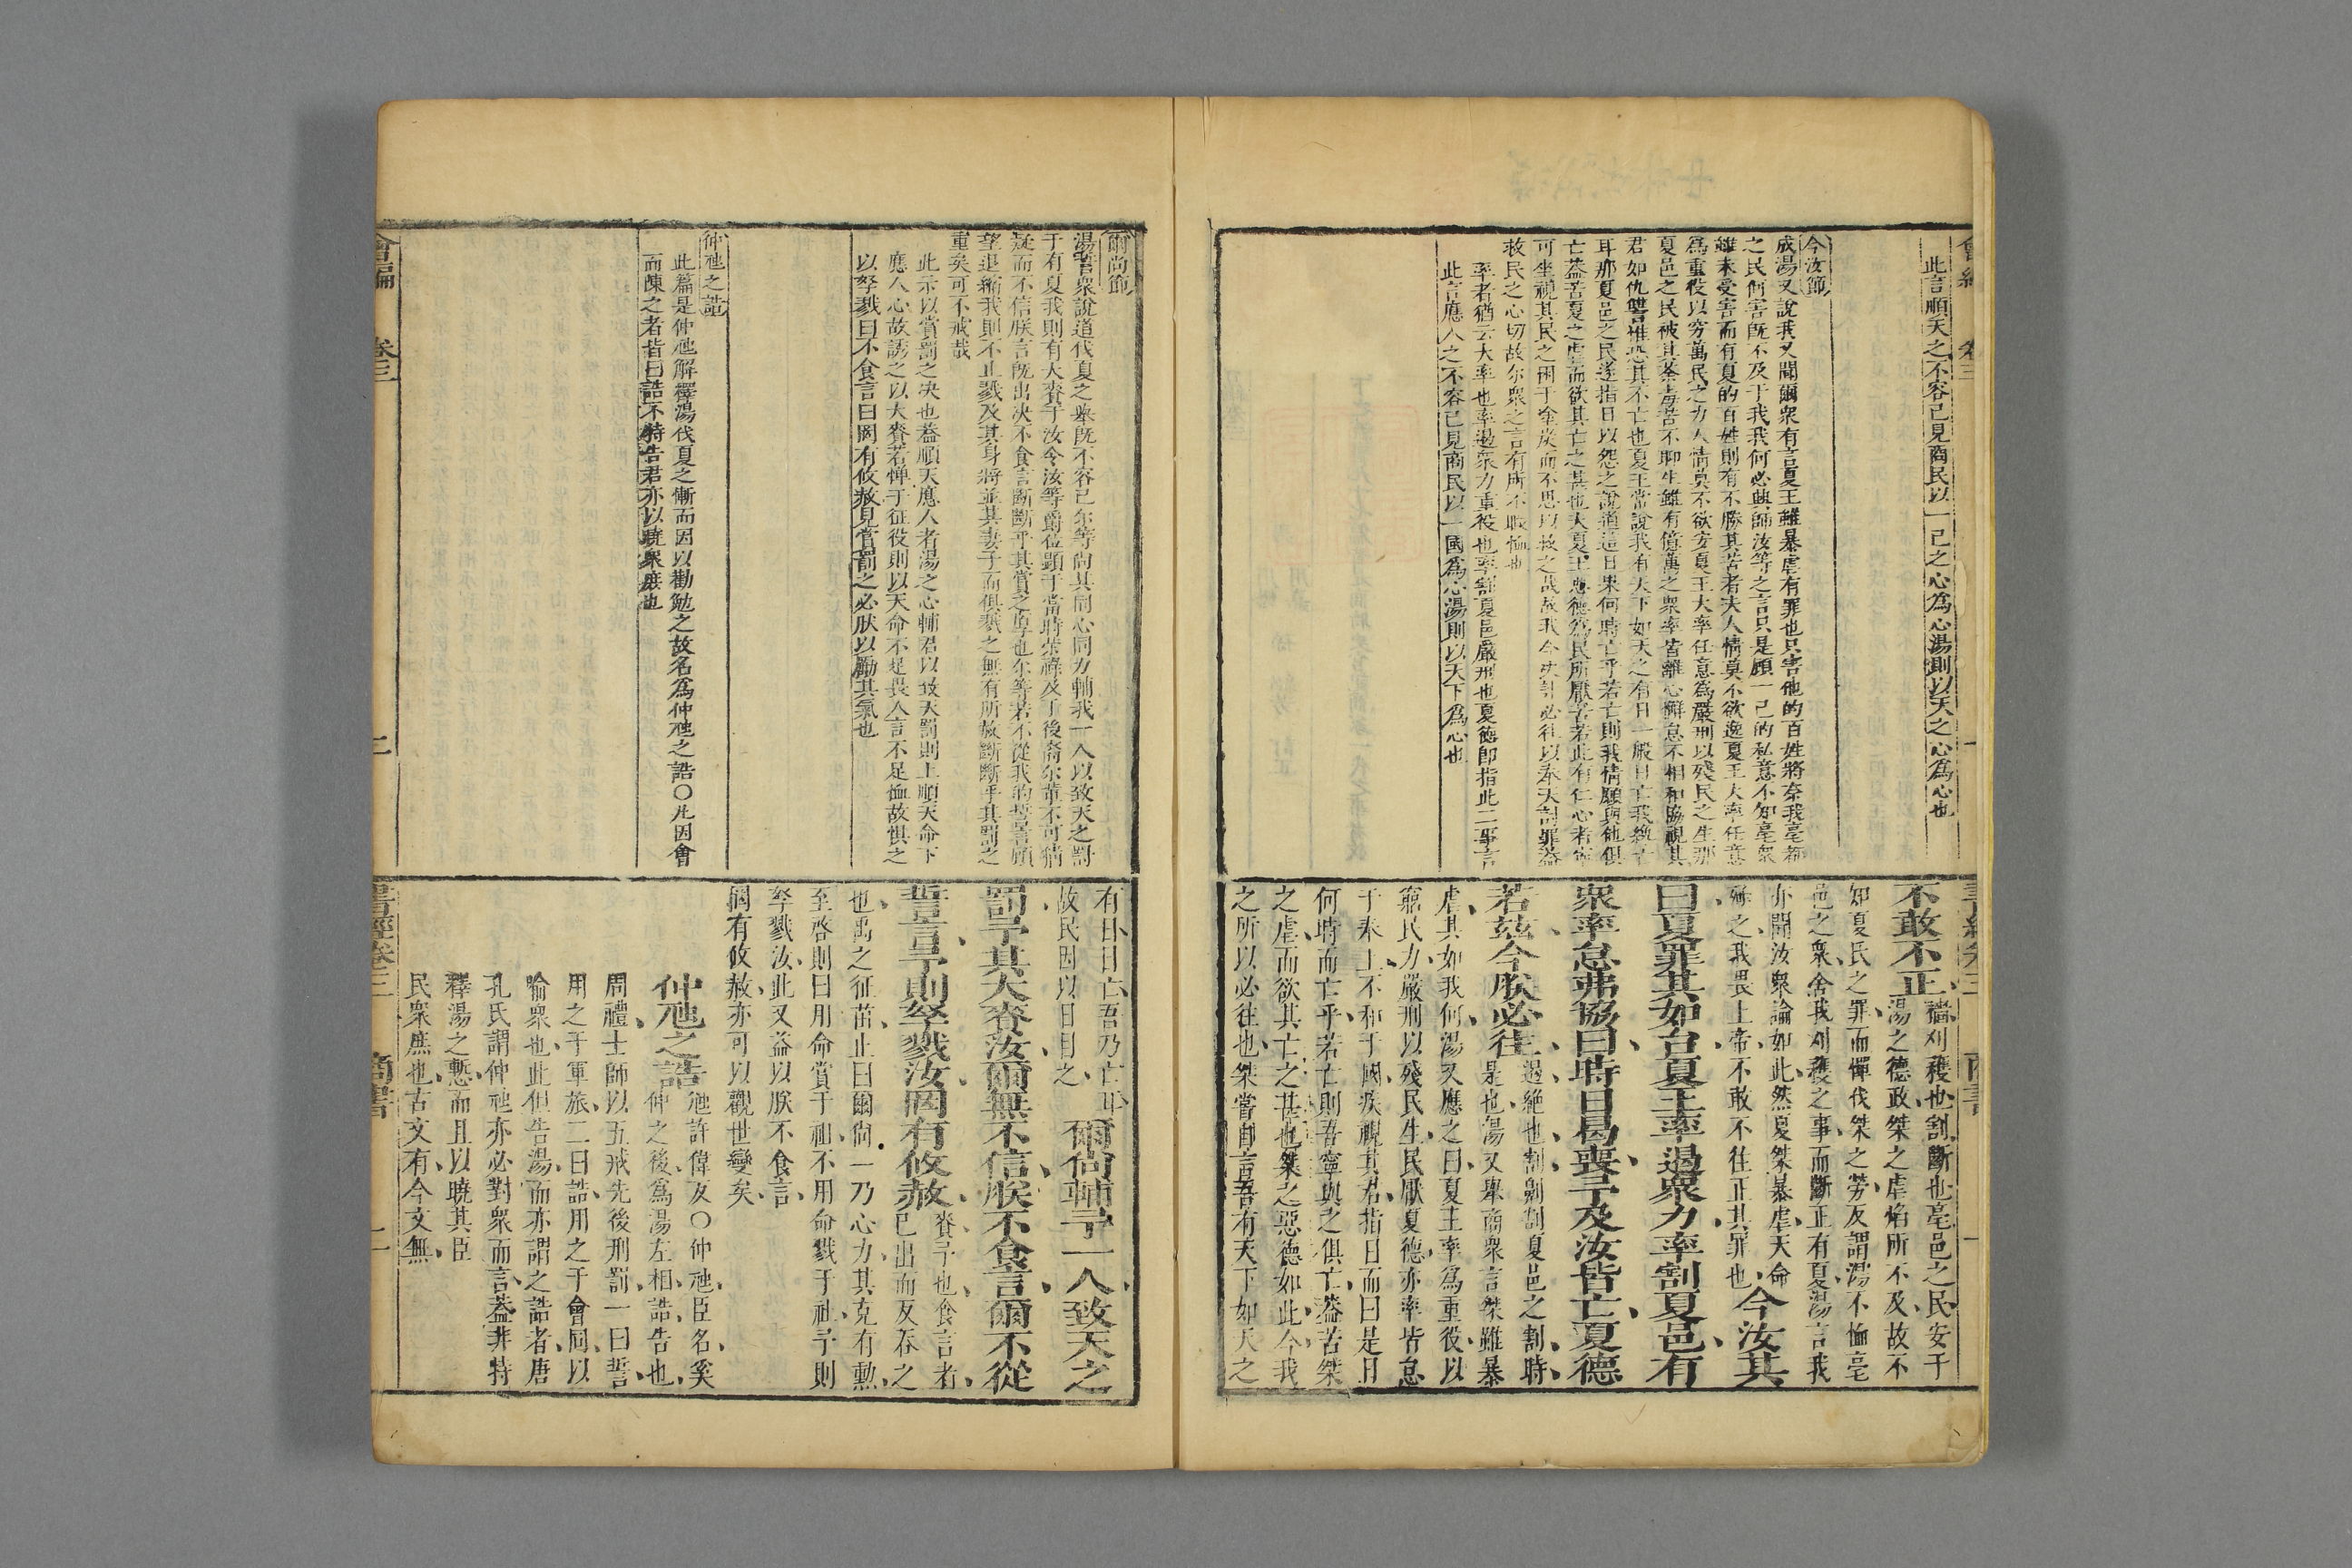 此言順天之不容已見商民以一己之心為心湯則以天之心為心也
今汝節
成湯又說我又聞爾衆有言夏王雖暴虐有罪也只害他的百姓將奈我亳都
之民何害旣不及于我我何必興師汝等之言只是顧一己的私意不知亳衆
雖未受害而有夏的百姓則有不勝其苦者夫人情莫不欲逸夏王大率任意
為重役以窮萬民之力人情莫不欲安夏王大率任意為嚴刑以殘民之生那
夏邑之民被其荼毒苦不聊生雖有億萬之衆率皆離心懈怠不相和協視其
君如仇讐惟恐其不亡也夏王常說我有天下如天之有日一般日亡我纔亡
耳那夏邑之民遂指日以怨之說道這日果何時亡乎若亡則我情願與他俱
亡葢苦夏之虐而欲其亡之甚也夫夏王惡德為民所厭苦若此有仁心者寧
可坐視其民之困于塗炭而不思以救之哉故我今决計必往以奉天討罪葢
救民之心切故尔衆之言有所不暇恤也
率者猶云大率也率遏衆力重役也率割夏邑嚴刑也夏德即指此二事言
此言應人之不容已見商民以一國為心湯則以天下為心也
不敢不正穡刈穫也割斷也亳邑之民安于
湯之德政桀之虐焰所不及故不
知夏氏之罪而憚伐桀之勞反謂湯不恤亳
邑之衆舍我刈穫之事而斷正有夏湯言我
亦聞汝衆論如此然夏桀暴虐天命
殛之我畏上帝不敢不往正其罪也今汝其
曰夏罪其如台夏王率遏衆力率割夏邑有
衆率怠弗協曰時日曷喪予及汝皆亡夏德
若茲今朕必往遏絶也割劓割夏邑之割時
是也湯又舉商衆言桀雖暴
虐其如我何湯又應之曰夏王率為重役以
窮民力嚴刑以殘民生民厭夏德亦率皆怠
于奉上不和于國疾視其君指日而曰是日
何時而亡乎若亡則吾寧與之俱亡葢苦桀
之虐而欲其亡之甚也桀之惡德如此今我
之所以必往也桀嘗自言吾有天下如天之
爾尚節
湯誓衆說道伐夏之舉旣不容已尔等尚其同心同力輔我一人以致天之罰
于有夏我則有大賚于汝令汝等爵位顯于當時榮祿及于後裔尔輩不可猜
疑而不信朕言旣出决不食言斷斷乎其賞之厚也尔等若不從我的誓言顧
望退縮我則不止戮及其身將並其妻子而俱戮之無有所赦斷斷乎其罰之
重矣可不戒哉
此示以賞罰之决也葢順天應人者湯之心輔君以致天罰則上順天命下
應人心故誘之以大賚若憚于征役則以天命不足畏人言不足恤故惧之
以孥戮曰不食言曰罔有攸赦見賞罰之必朕以勵其氣也
仲虺之誥
此篇是仲虺解釋湯伐夏之慚而因以勸勉之故名為仲虺之誥○凡因會
而陳之者皆曰誥不特告君亦以曉衆庶也
會編 卷三 二
有日日亡吾乃亡耳
故民因以日目之 爾尚輔予一人致天之
罰予其大賚汝爾無不信朕不食言爾不從
誓言予則孥戮汝罔有攸赦賚予也食言者
已出而反吞之
也禹之征苗止曰爾尚一乃心力其克有勲
至啓則曰用命賞于祖不用命戮于社予則
孥戮汝此又益以朕不食言
罔有攸赦亦可以觀世變矣
仲虺之誥虺許偉反○仲虺臣名奚
仲之後為湯左相誥告也
周禮士師以五戒先後刑罰一曰誓
用之于軍旅二曰誥用之于會同以
喻衆也此但告湯而亦謂之誥者唐
孔氏謂仲虺亦必對衆而言葢非特
釋湯之慙而且以曉其臣
民衆庶也古文有今文無
書經卷三 商書 二